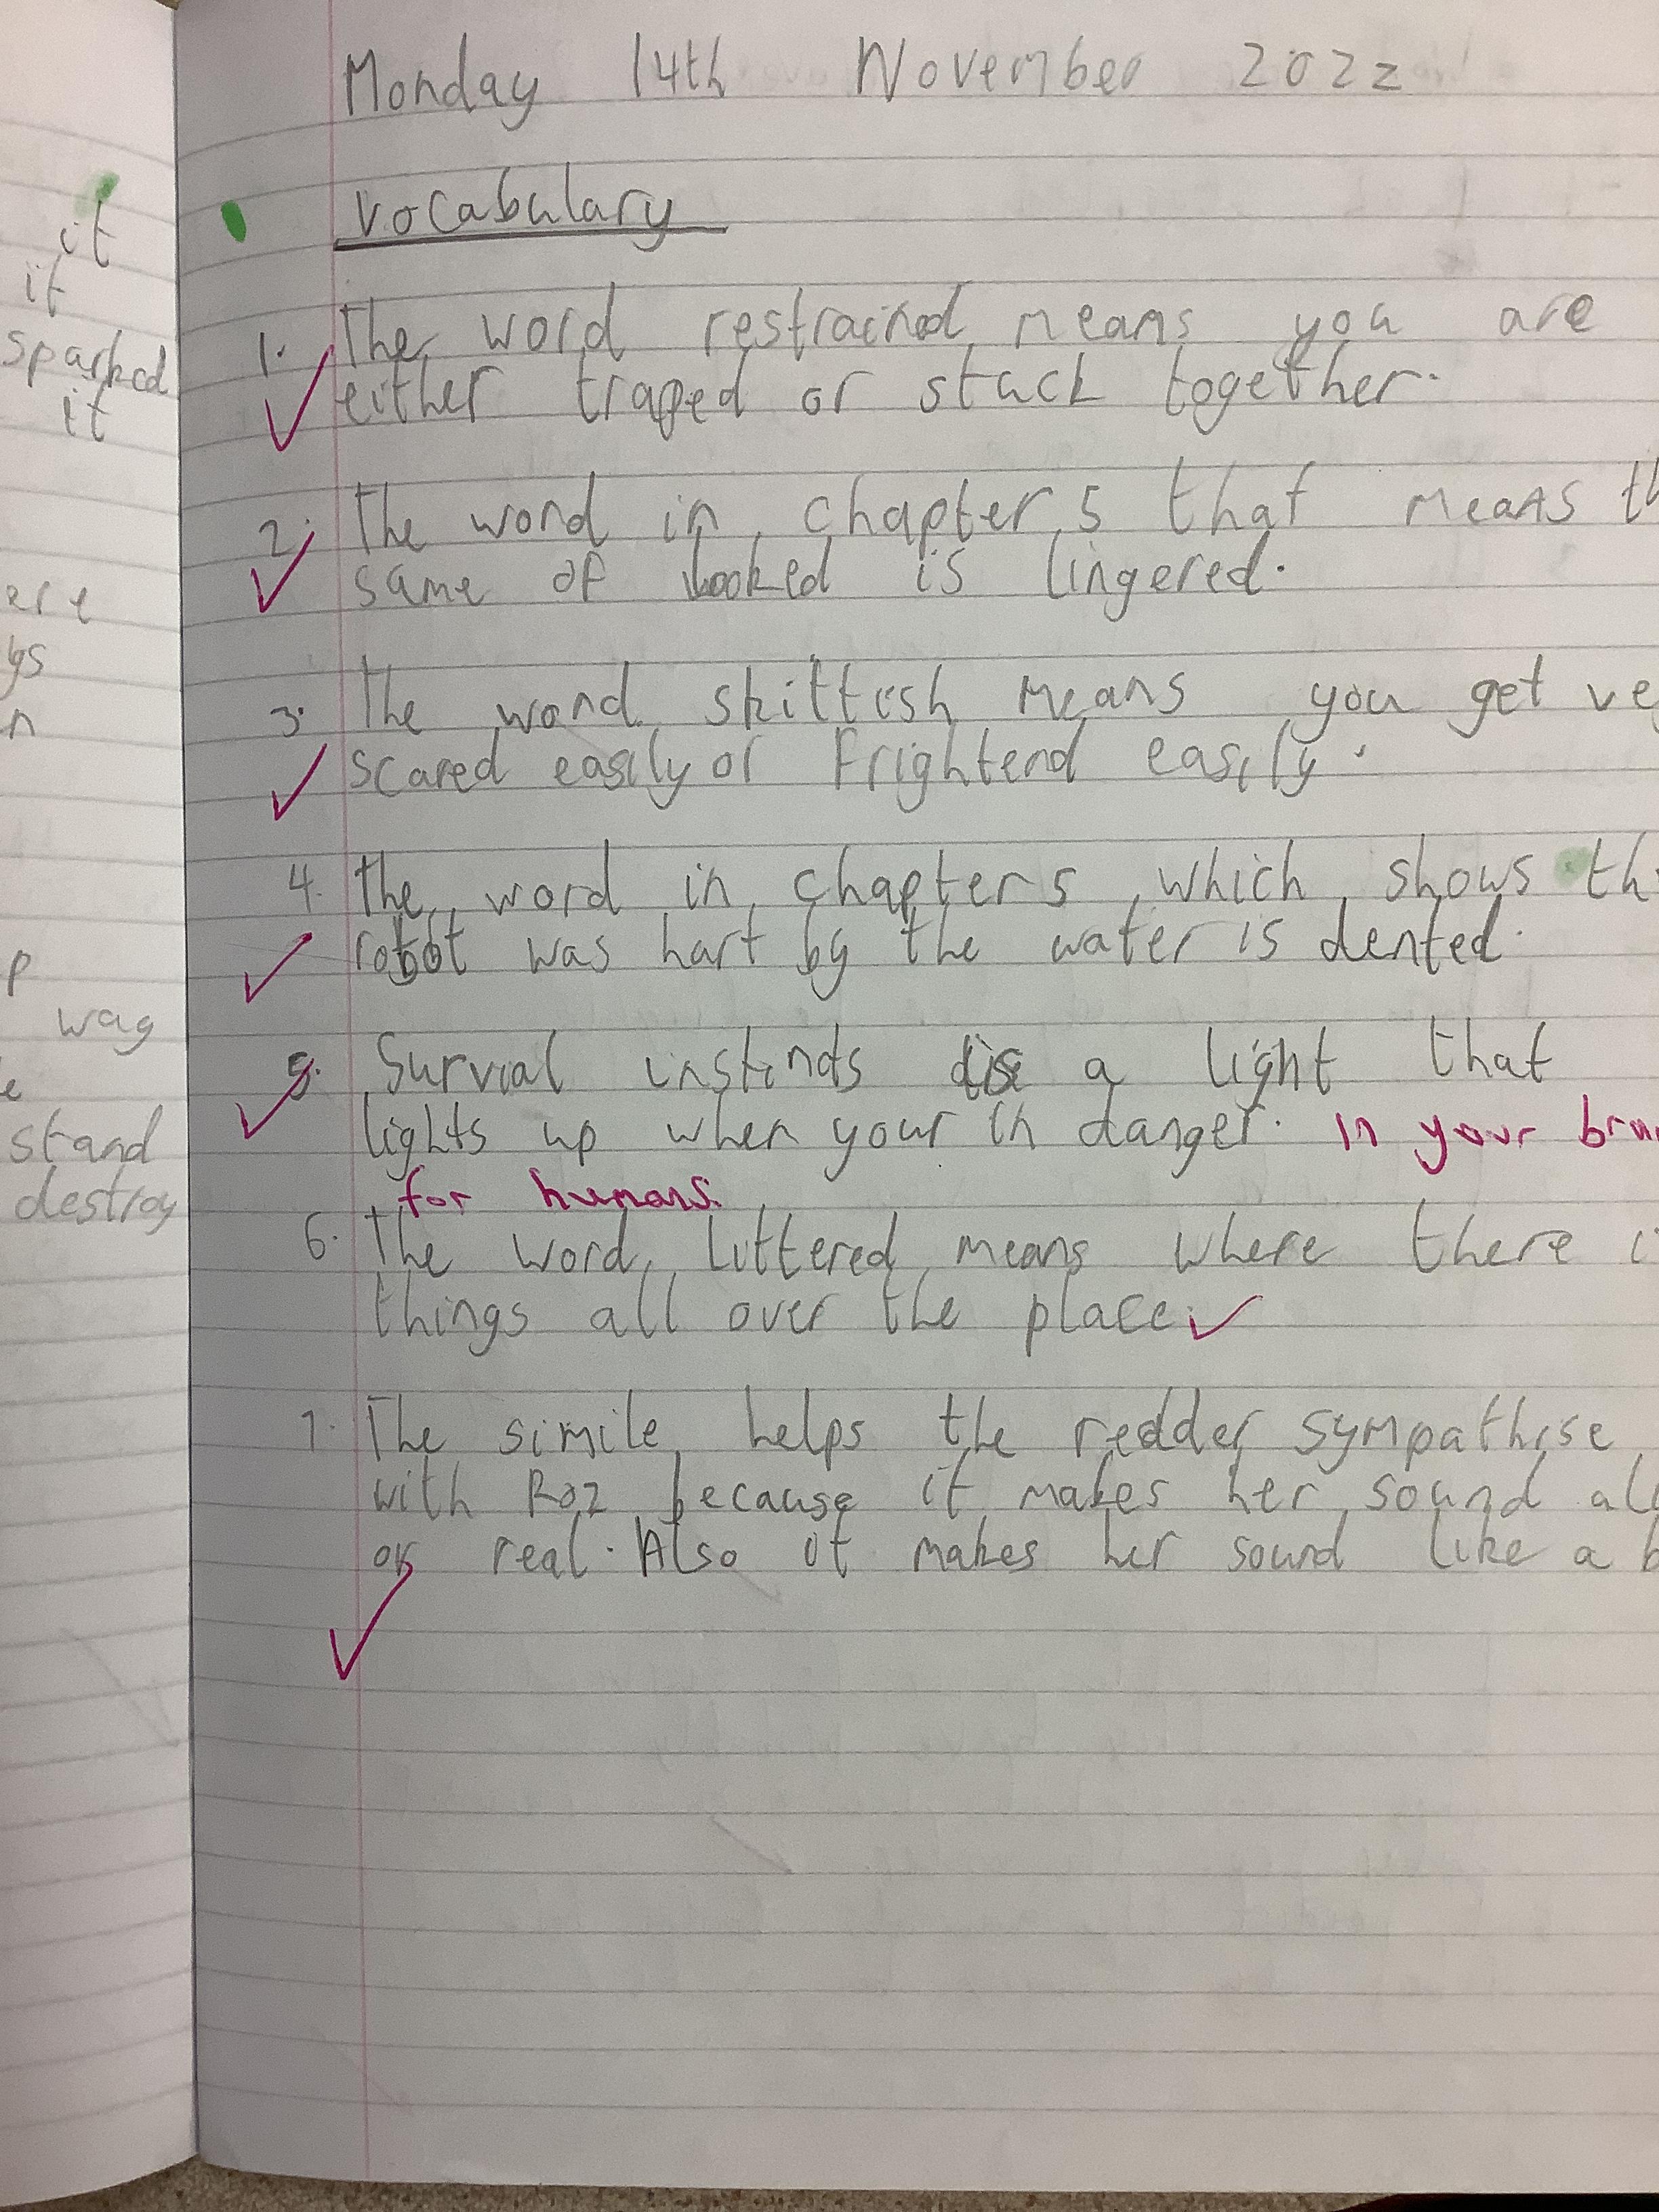 it
it
sparked
it
ere
gs
n
p
wag
e
stand
destroy
Monday 14th November 2022
Vocabulary
1. The word restrained means you are
either traped or stuck together.
2. The word in chapter 5 that means th
same of looked is lingered.
3. The word skittish means you get ve
scared easily or Frightend easily.
4. The word in chapter 5 which shows th
robot was hurt by the water is dented.
5. Survial instincts is a light that
lights up when your in danger. In your bra
for humans.
6. The word Littered means where there i
things all over the place.
7. The simile helps the reader sympathise
with Roz because it makes her sound al
or real. Also it makes her sound like a b